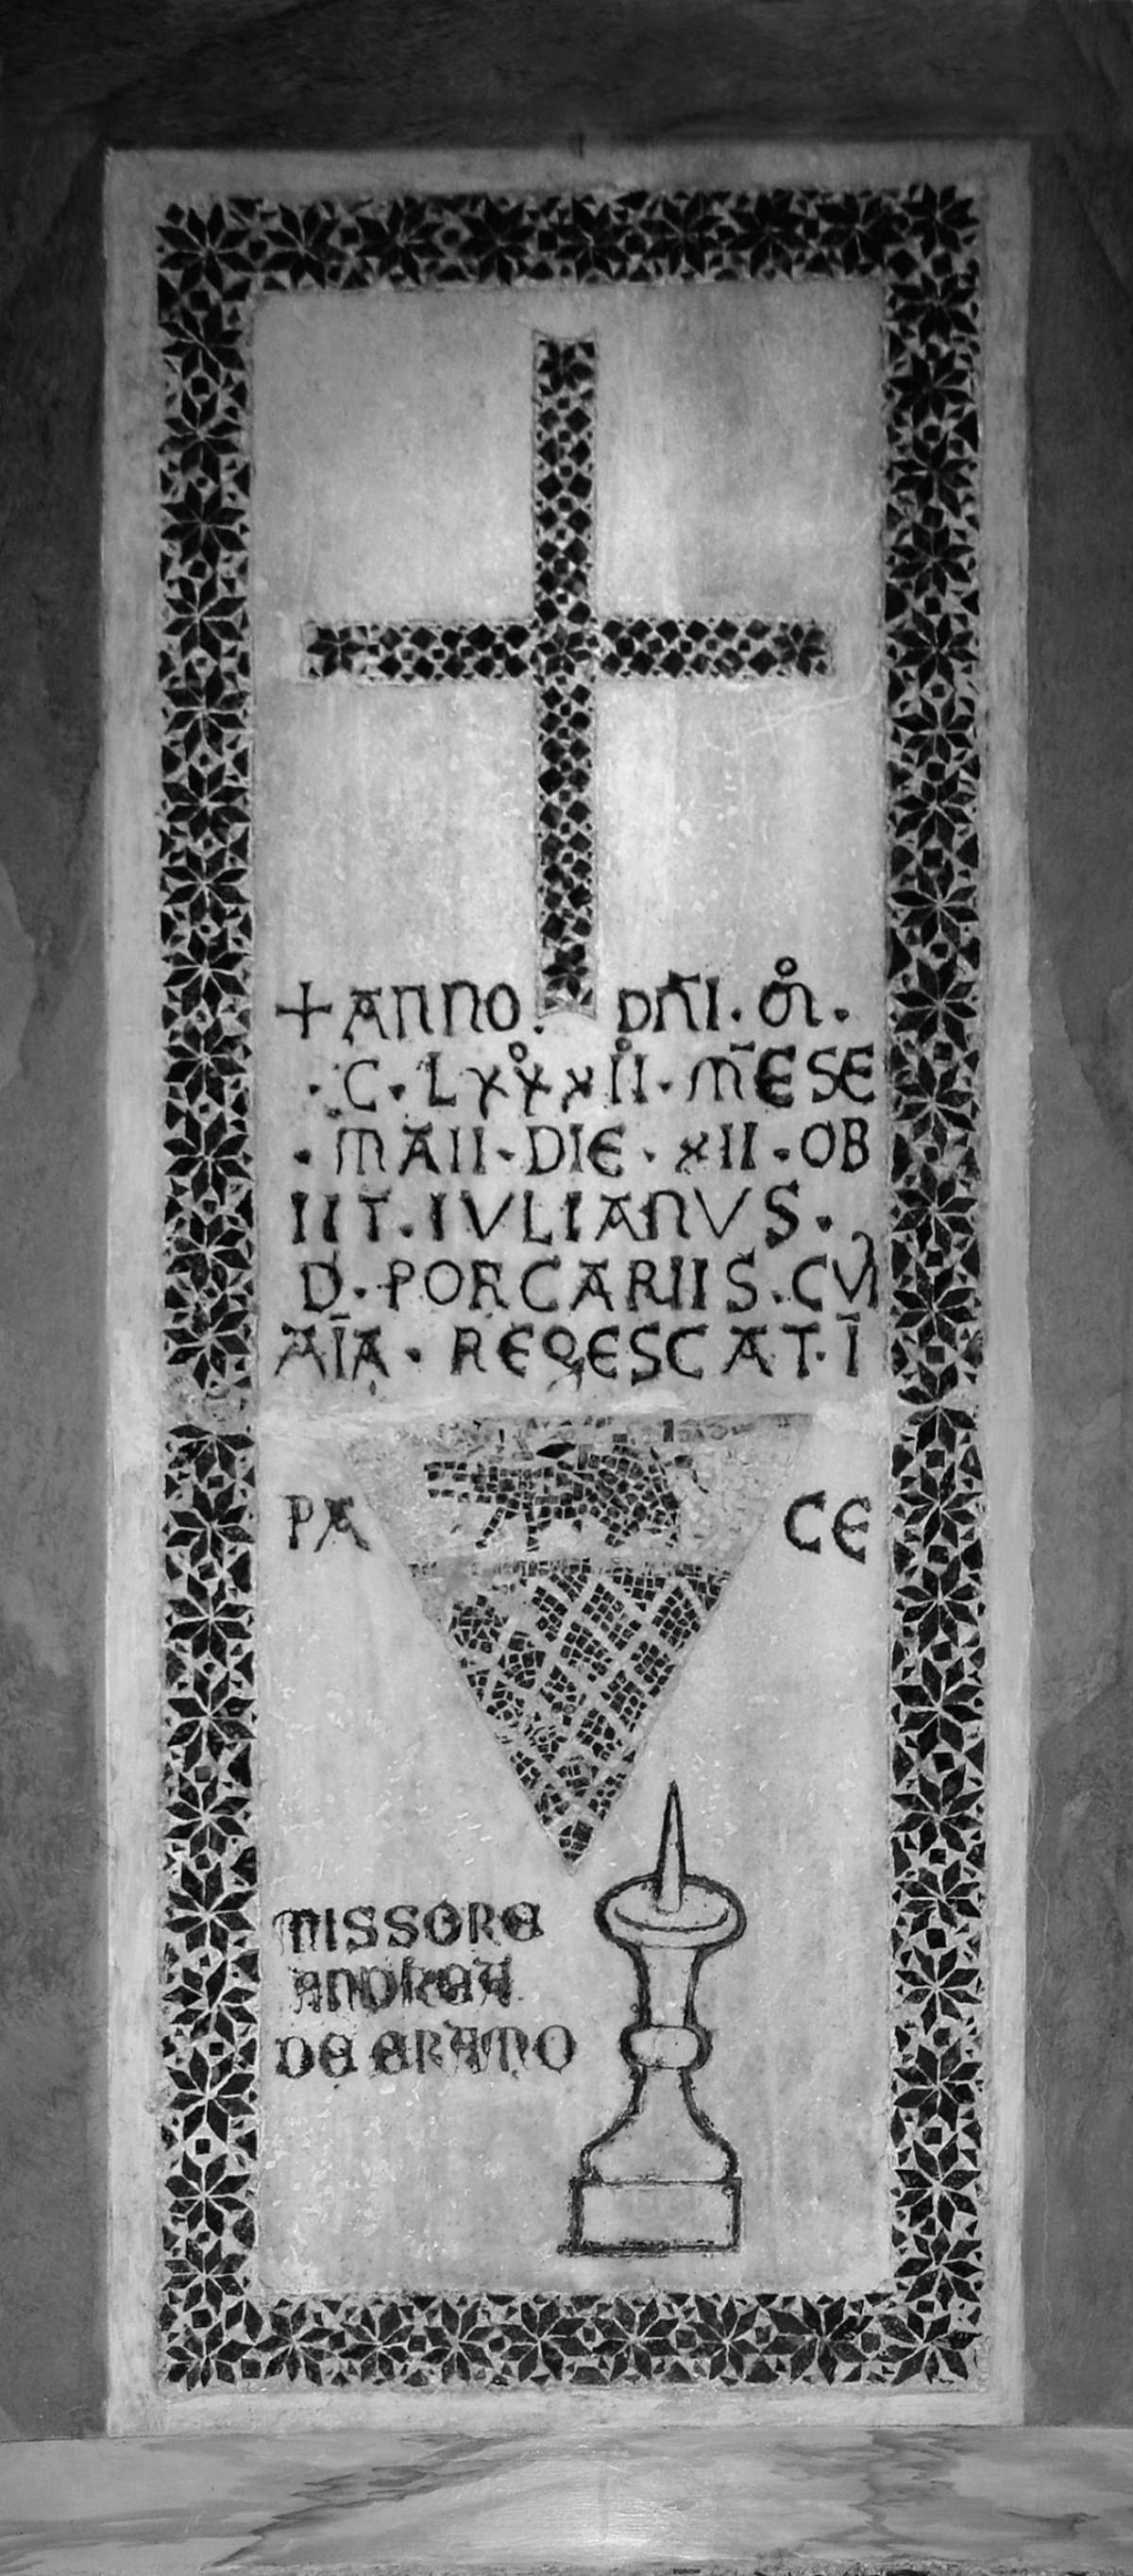 + ANNO. DN̄I. M̊.
·C·LXXX̊II̊·M̄ESE
·MAII·DIE·XII·OB
IIT·IVLIANVS·
D·PORCARIIS·CVI
AĪA·REQESCAT·Ī
PA CE
MISSORE
ANDREA
DE